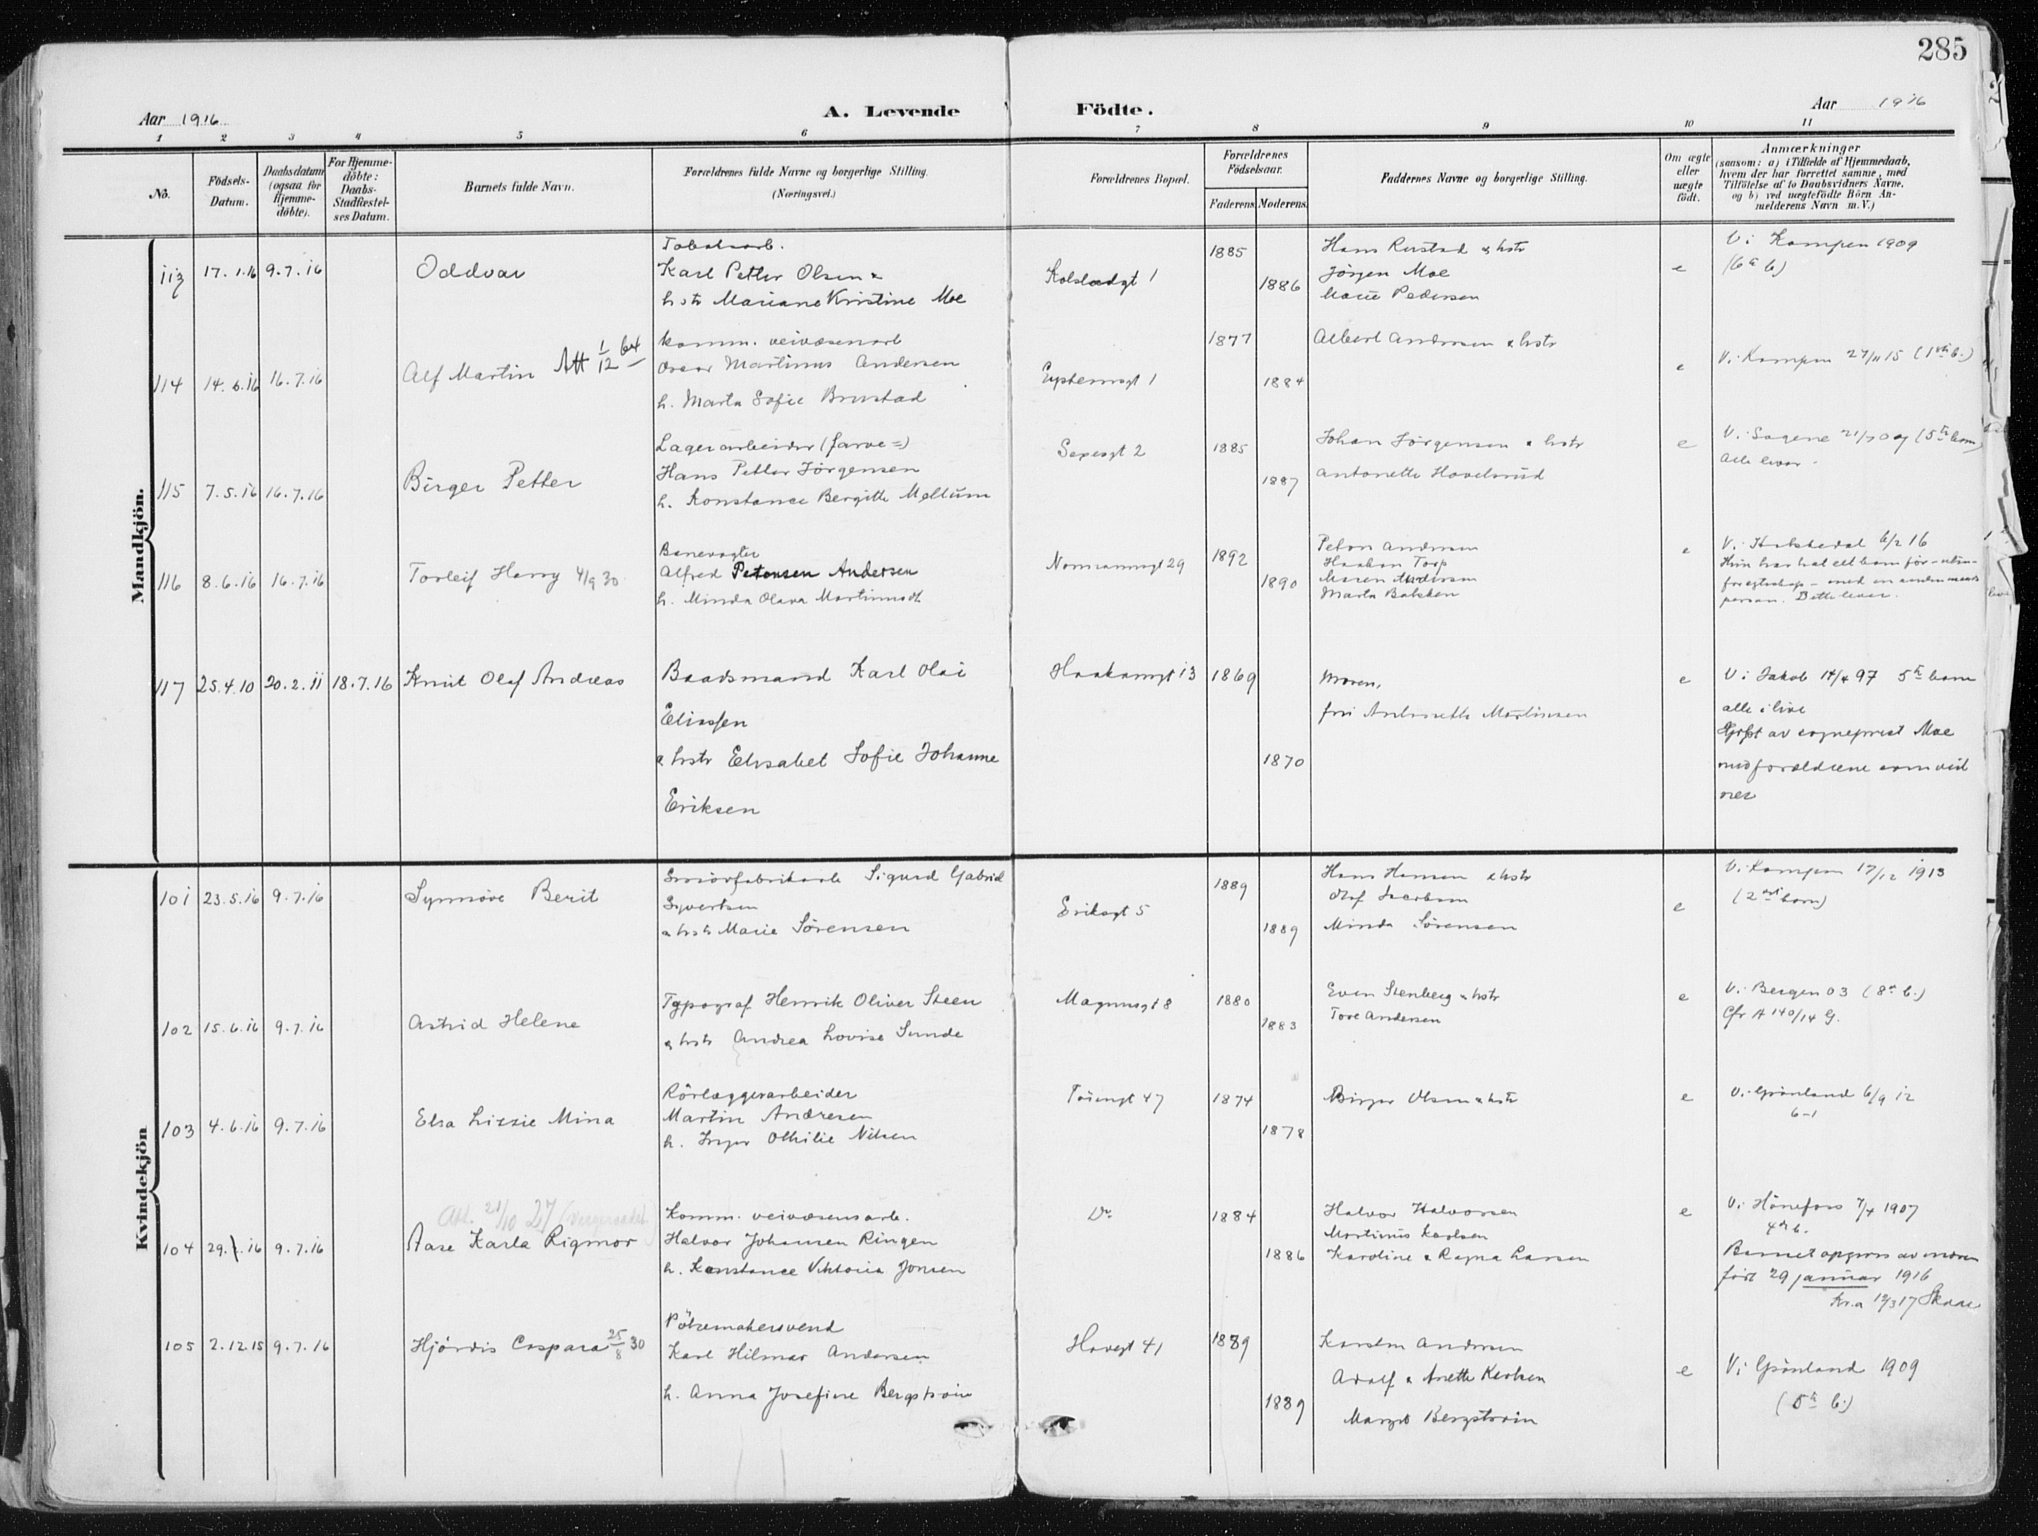 285
Aar 1916
A. Levende Födte.
Aar 1916
1 2 3 4 5 6 7 8 9 10 11
No.
Födsels-Datum.
Daabsdatum (ogsaa for Hjemmedöbte).
For Hjemmedöbte: Daabs-Stadfæstelses Datum.
Barnets fulde Navn.
Forældrenes fulde Navne og borgerlige Stilling. (Næringsvei.)
Forældrenes Bopæl.
Forældrenes Födselsaar.
Faderens. Moderens.
Faddernes Navne og borgerlige Stilling.
Om ægte eller uægte födt.
Anmærkninger
(saasom: a) i Tilfælde af Hjemmedaab,
hvem der har forrettet samme, med
Tilföielse af to Daabsvidners Navne,
og b) ved uægtefödte Börn Anmelderens Navn m. V.)
Mandkjön.
113 17.1.16 9.7.16 Oddvar
Karl Petter Olsen &
hstr Mariane Kristine Moe
1885
1886
Hans Rustad & hstr
Jörgen Moe
Marie Pedersen
e
V. i Kampen 1909
(6te b)
114 14.6.16 16.7.16 Alf Martin Att 1/12 64
komm. veivæsenarb
Oscar Martinus Andersen
h. Marta Sofie Brustad
1877
1884
Albert Andersen & hstr
e
V. i Kampen 27/11 15 (1ste b.)
115 7.5.16 16.7.16 Birger Petter
Lagerarbeider (farve=)
Hans Petter Jörgensen
h. Konstance Bergitte Meltum
Sexesgt 2
1885
1887
Johan Jörgensen & hstr
Antonette Hovelsrud
e
V. i Sagene 21/7 09 (5te barn)
Alle lever.
116 8.6.16 16.7.16 Torleif Harry 4/9 30
Banevogter
Alfred Petersen Andersen
h. Minda Olava Martinusdt
Normannsgt 29
1892
1890
Peter Andersen
Haakon Torp
Maren Andersen
Marta Bakken
e
V. i Hakkedal 6/2 16
Hun har hat ett barn før - utenfor egteskap - med en anden mandsperson. Dette lever.
117 25.4.10 20.2.11 18.7.16 Knut Olaf Andreas
Baadsmand Karl Olai
Eliassen
& hstr Elisabet Sofie Johanne
Eriksen
Haakonsgt 13
1869
1870
Moren,
fru Antonette Martinsen
e
V i Jakob 14/4 97 5te barn
alle i live
av sogneprest Moe
med forældrene som vidner
Kvindekjön
101 23.5.16 9.7.16 Synnöve Berit
Smörfabrikarb Sigurd Gabriel
Syvertsen
& hstr Marie Sörensen
Eriksgt 5
1889
1889
Hans Hansen & hstr
Olaf Jacobsen
Minda Sörensen
e
V. i Kampen 17/12 1913
(2det barn)
102 15.6.16 9.7.16 Astrid Helene
Typograf Henrik Oliver Steen
& hstr Andrea Lovise Sunde
Magnusgt 8
1880
1883
Even Stenberg & hstr
Tove Andersen
e
V. i Bergen 03 (8de b.)
Cfr A 140/14 G.
103 4.6.16 9.7.16 Elsa Lizzie Mina
Rörlæggerarbeider
Martin Andresen
h. Inger Othilie Nilsen
Töiengt 47
1874
1878
Birger Olsen & hstr
e
V. i Grönland 6/9 12
6-1
104 29.1.16 9.7.16 Aase Karla Rigmor
Att. 21/10 27
Komm. veivæsensarb.
Halvor Johansen Ringen
h. Konstance Viktoria Jonsen
Do
1884
1886
Halvor Halvorsen
Martinus Karlsen
Karoline & Ragna Larsen
e
V. i Hönefoss 7/4 1907
4de b.
Barnet opgives av moren
född 29 januar 1916
Kr.a 12/3 17 Skaar
105 2.12.15 9.7.16 Hjördis Caspara 25/8 30
Pölsemakersvend
Karl Hilmar Andersen
h. Anna Josefine Bergström
Hovegt 41
1889
1889
Karsten Andersen
Adolf & Anette Karlsen
Margit Bergström
e
V i Grönland 1909
(5te b.)